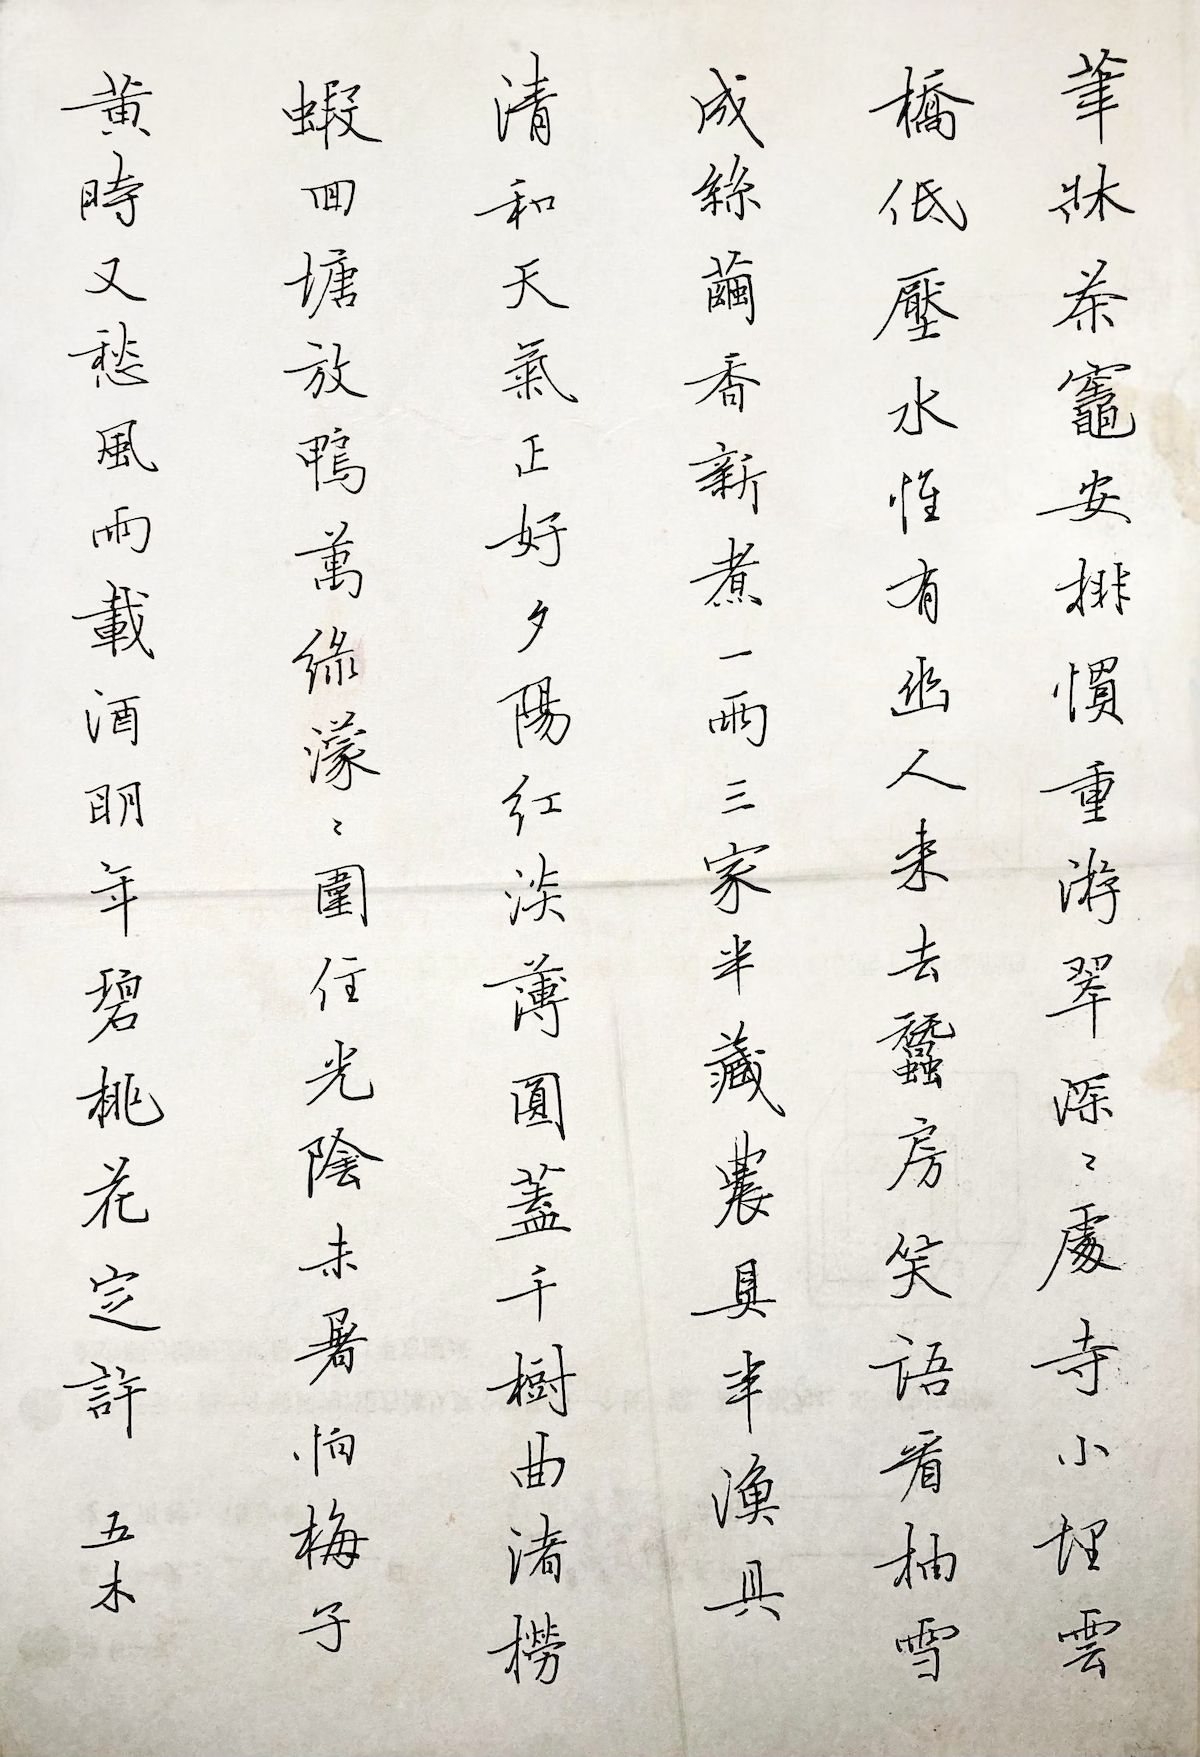 筆牀茶竈安排慣重游翠深〻處寺小埋雲
橋低壓水惟有幽人来去蠶房笑語看抽雪
成絲繭香新煮一兩三家半藏農具半漁具
清和天氣正好夕陽紅淡薄圓蓋千樹曲渚撈
蝦回塘放鴨萬綠濛〻圍住光陰未暑怕梅子
黃時又愁風雨載酒明年碧桃花定許 五木